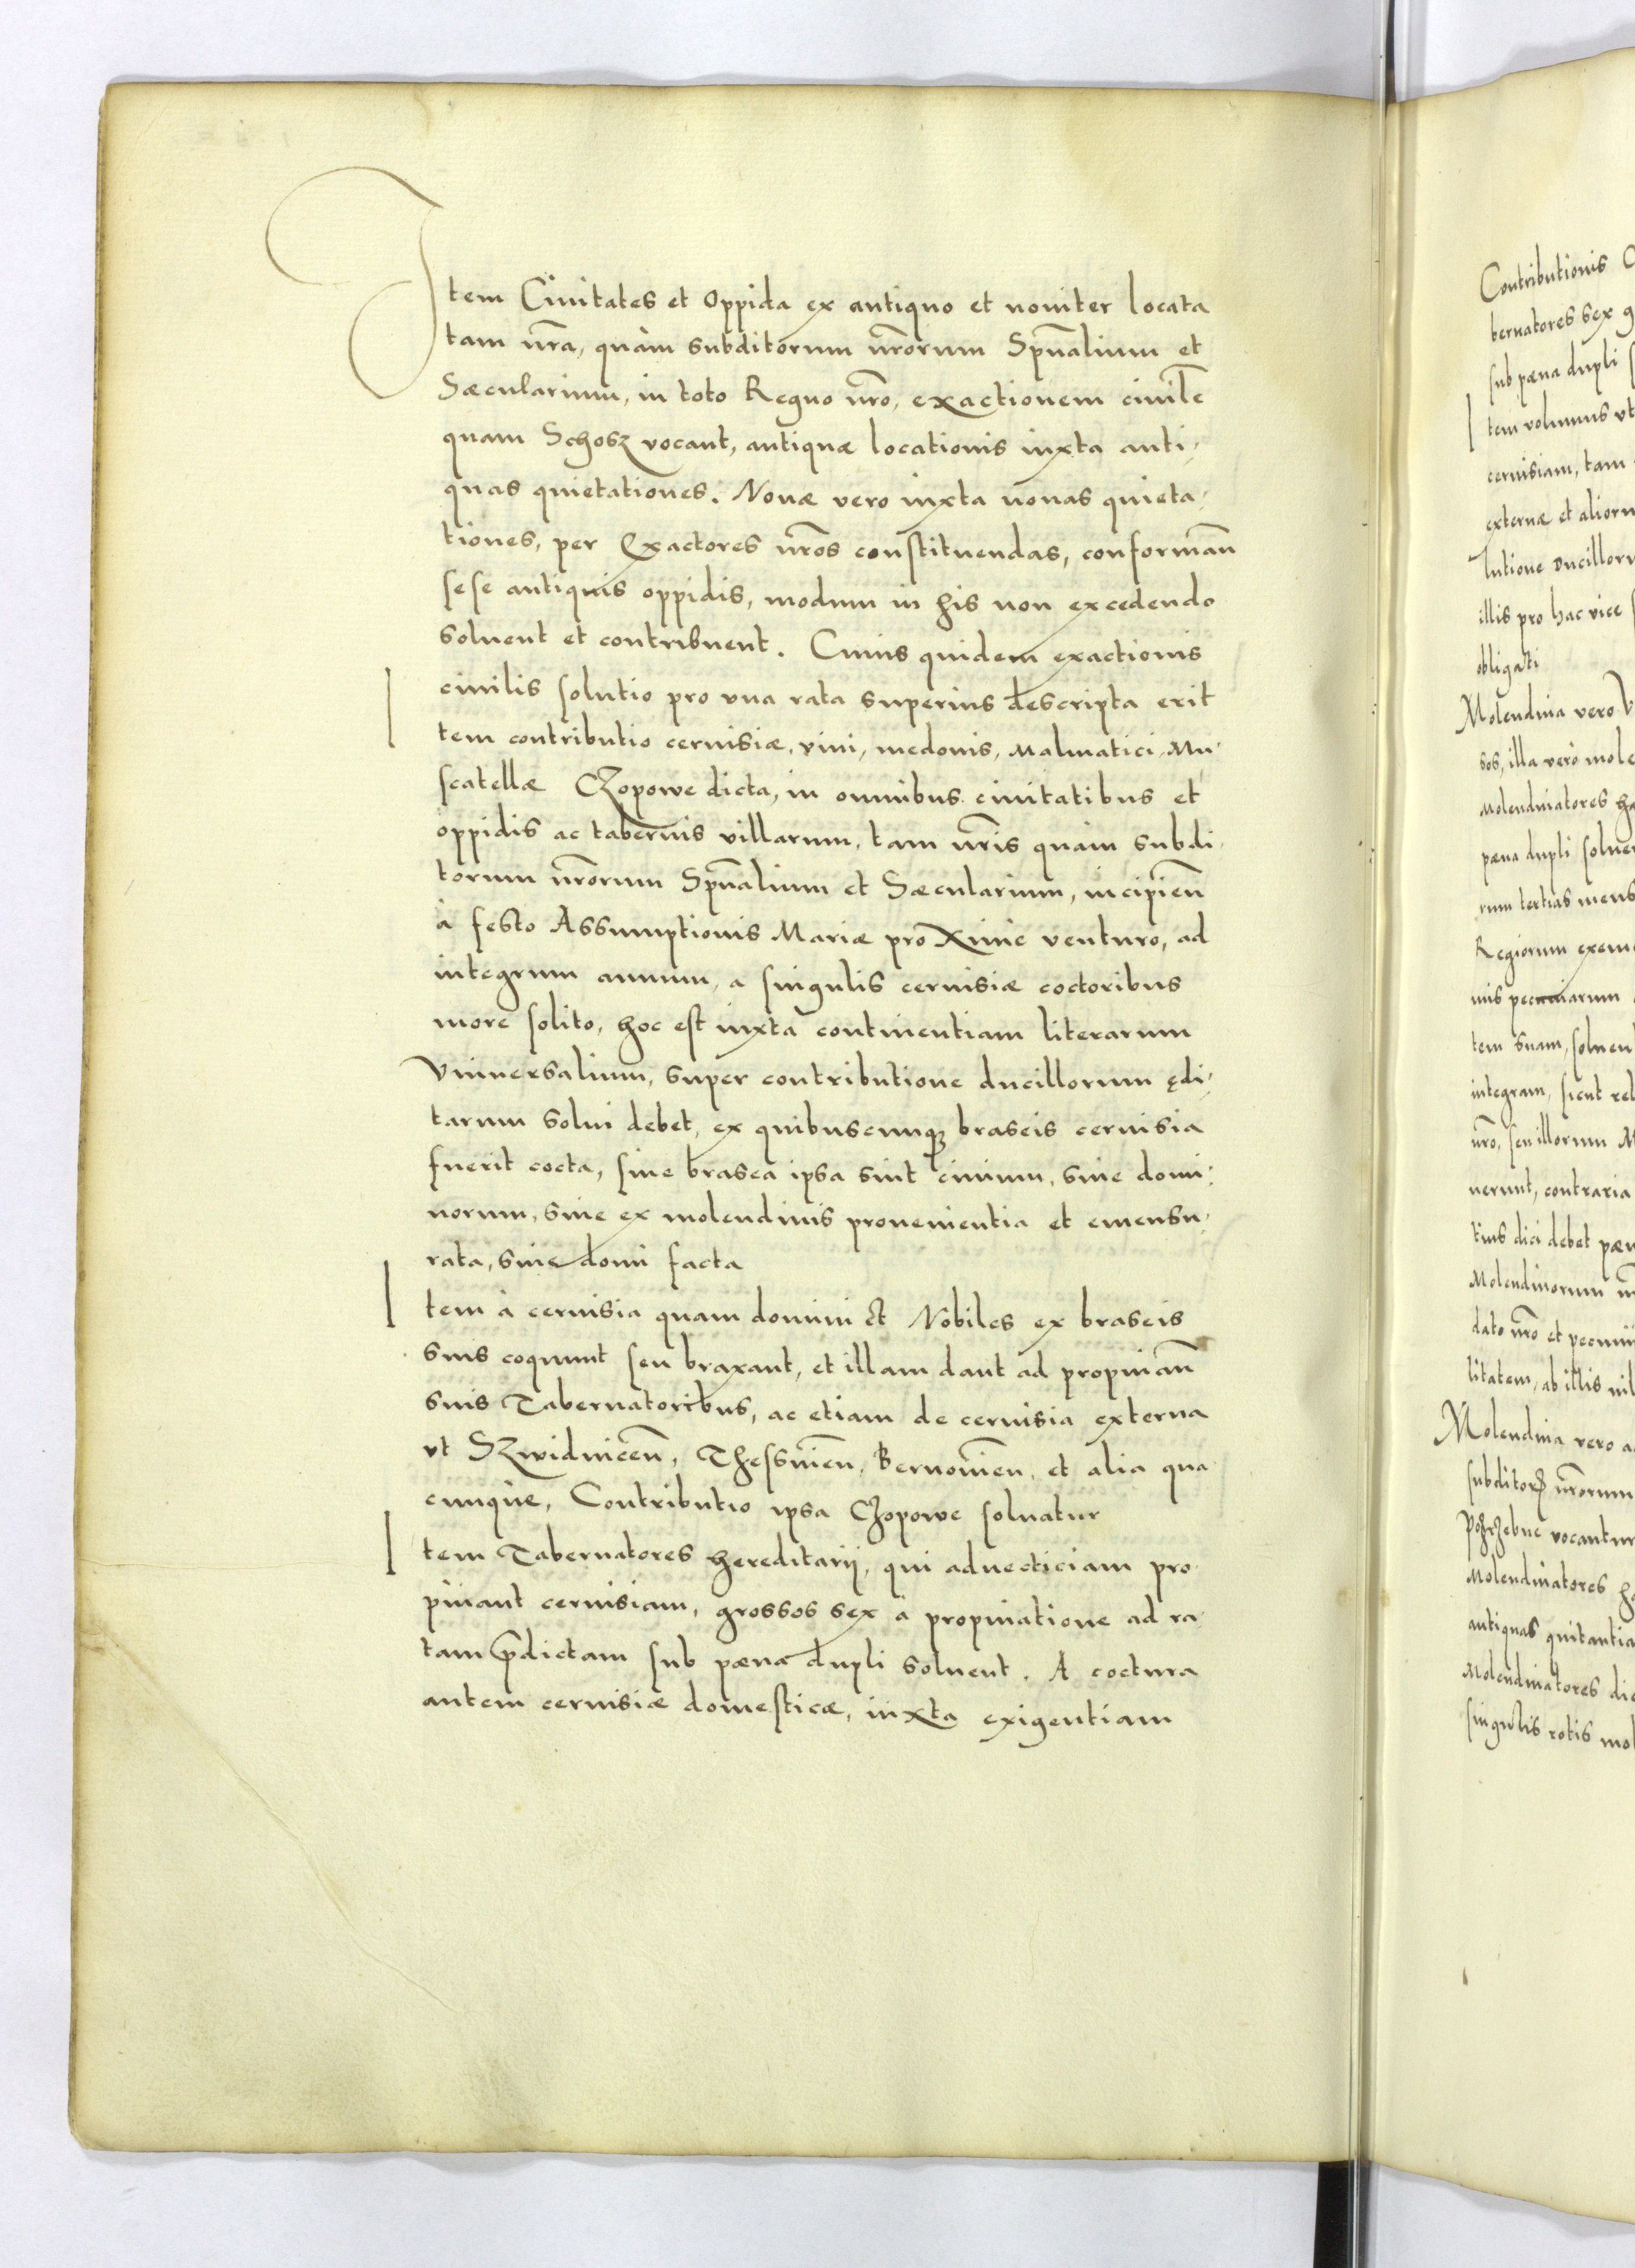 Item Ciuitates et Oppida ex antiquo et nouiter locata
tam nr̃a, quàm subditorum nr̃orum Spũalium et
Sæcularium, in toto Regno nr̃o, exactionem ciuilẽ
quam Schosz vocant, antiquæ locationis iuxta anti-
quas quietationes. Nouæ vero iuxta nouas quieta-
tiones, per Exactores nr̃os constituendas, conformañ
sese antiquis oppidis, modum in his non excedendo
soluent et contribuent. Cuius quidem exactionis
ciuilis solutio pro vna rata superius descripta erit
Item contributio ceruisiæ, vini, medonis, Malmatici, Mu-
scatellæ Czopowe dicta, in omnibus ciuitatibus et
oppidis ac tabernis villarum, tam nr̃is quàm subdi-
torum nr̃orum Spũalium et Sæcularium, incipień
à festo Assumptionis Mariæ proxime venturo, ad
integrum annum, a singulis ceruisiæ coctoribus
more solito, hoc est iuxta continentiam literarum
Vniuersalium, super contributione ducillorum ędi-
tarum solui debet, ex quibuscunqꝫ braseis ceruisia
fuerit cocta, siue brasea ipsa sint ciuium, siue domi-
norum, siue ex molendinis prouenientia et emensu-
rata, siue domi facta
Item à ceruisia quam domini et Nobiles ex braseis
suis coquunt seu braxant, et illam dant ad propinañ
suis Tabernatoribus, ac etiam de ceruisia externa
vt Szwidniceñ, Thessinieñ, Bernouieñ, et alia qua
cunque, Contributio ipsa Czopowe soluatur
Item Tabernatores hereditarij, qui aduecticiam pro-
pinant ceruisiam, grossos sex à propinatione ad ra-
tam p̃dictam sub pæna dupli soluent. A coctura
autem ceruisiæ domesticæ, iuxta exigentiam
Contributionis
bernatores sex
sub pæna dupli
Item volumus vt
ceruisiam, tam
externæ et aliorum
lutione ducillorum
illis pro hac vice
obligati
Molendina vero
sos, illa verò mole
Molendinatores ha
pæna dupli soluen
rum tertias mens
Regiorum exem
nis pecuniarum
tem suam, soluen
integram, sicut rel
nr̃o, seu illorum
uerunt, contraria
tius dici debet pæn
Molendinorum
dato nr̃o et pecunii
litatem, ab illis nil
Molendina vero a
subditoꝝ nr̃orum
vocantur
Molendinatores ha
antiquas quitantia
Molendinatores dic
singulis rotis mol